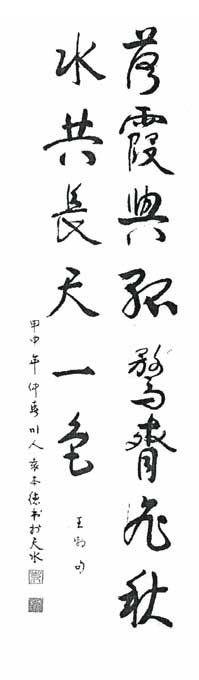 落霞與孤鶩齊飛秋
水共長天一色
王勃句
甲申年仲春川人書於天水